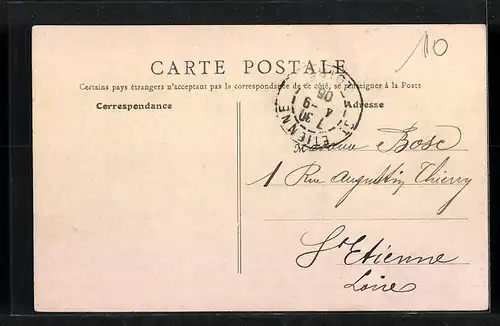 10
CARTE POSTALE
Certains pays étrangers n'acceptant pas la correspondance de ce côté, se renseigner à la Poste
Correspondance
Adresse
ST ETIENNE
7 30
4 -9
06
Madame Bosc
1 Rue Augustin Thierry
St Etienne
Loire